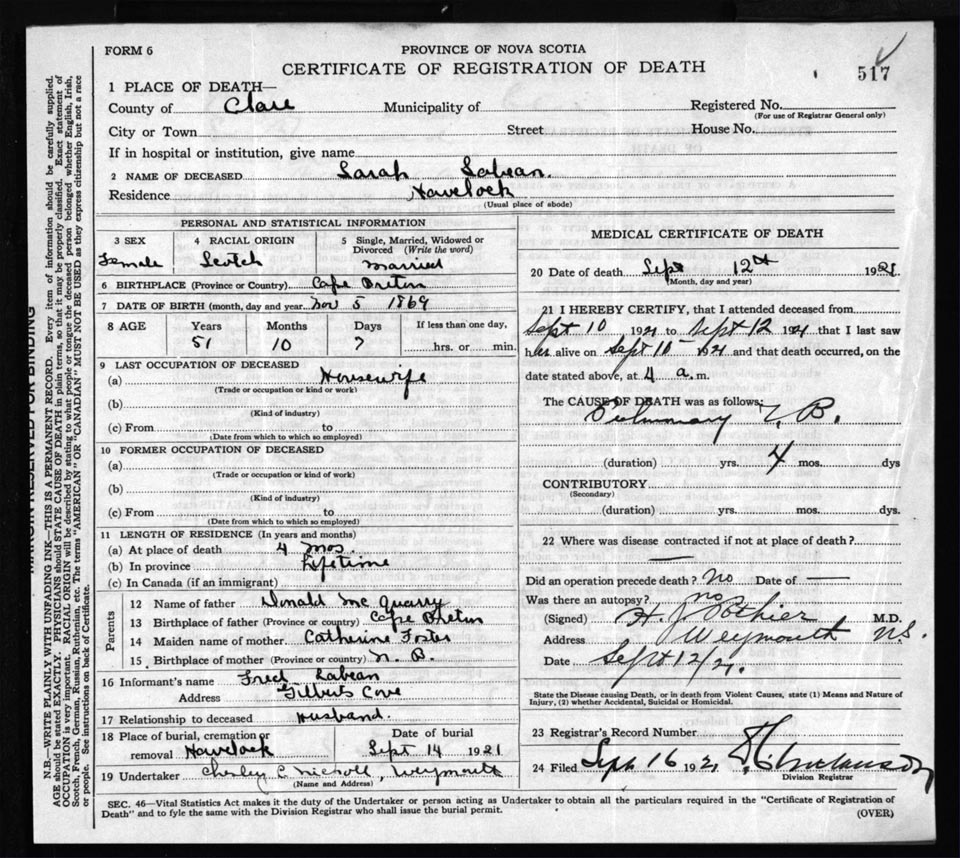 FORM 6
PROVINCE OF NOVA SCOTIA
CERTIFICATE OF REGISTRATION OF DEATH
517
1 PLACE OF DEATH—
County of Clare Municipality of Registered No.
(For use of Registrar General only)
City or Town Street House No.
If in hospital or institution, give name
2 NAME OF DECEASED Sarah Labean.
Residence Havelock
(Usual place of abode)
PERSONAL AND STATISTICAL INFORMATION
3 SEX 4 RACIAL ORIGIN 5 Single, Married, Widowed or Divorced (Write the word)
Female Scotch Married
6 BIRTHPLACE (Province or Country) Cape Breton
7 DATE OF BIRTH (month, day and year) Nov 5 1869
8 AGE Years Months Days If less than one day,
51 10 7 hrs. or min.
9 LAST OCCUPATION OF DECEASED
(a) Housewife
(Trade or occupation or kind of work)
(b)
(Kind of industry)
(c) From to
(Date from which to which so employed)
10 FORMER OCCUPATION OF DECEASED
(a)
(Trade or occupation or kind of work)
(b)
(Kind of industry)
(c) From to
(Date from which to which so employed)
11 LENGTH OF RESIDENCE (In years and months)
(a) At place of death 4 mos.
(b) In province Lifetime
(c) In Canada (if an immigrant)
Parents
12 Name of father Donald Mc Quarry
13 Birthplace of father (Province or country) Cape Breton
14 Maiden name of mother Catherine Foster
15 Birthplace of mother (Province or country) N. B.
16 Informant's name Fred Labean
Address Gilberts Cove
17 Relationship to deceased Husband.
18 Place of burial, cremation or removal Havelock
Date of burial
Sept 14 1921
19 Undertaker C Nicholl, Weymouth
(Name and Address)
MEDICAL CERTIFICATE OF DEATH
20 Date of death Sept 12th 1921
(Month, day and year)
21 I HEREBY CERTIFY, that I attended deceased from
Sept 10 1921 to Sept 12 1921 that I last saw
her alive on Sept 10 1921 and that death occurred, on the
date stated above, at 4 a.m.
The CAUSE OF DEATH was as follows:
Pulmonary T. B.
(duration) yrs. 4 mos. dys
CONTRIBUTORY
(Secondary)
(duration) yrs. mos. dys.
22 Where was disease contracted if not at place of death?
Did an operation precede death? No Date of —
Was there an autopsy? no
(Signed) H. J. Pothier M.D.
Address Weymouth N.S.
Date Sept 12/21.
State the Disease causing Death, or in death from Violent Causes, state (1) Means and Nature of
Injury, (2) whether Accidental, Suicidal or Homicidal.
23 Registrar's Record Number
24 Filed Sept 16 1921
Division Registrar
SEC. 46—Vital Statistics Act makes it the duty of the Undertaker or person acting as Undertaker to obtain all the particulars required in the "Certificate of Registration of
Death" and to fyle the same with the Division Registrar who shall issue the burial permit.
(OVER)
MARGIN RESERVED FOR BINDING
N.B.—WRITE PLAINLY WITH UNFADING INK—THIS IS A PERMANENT RECORD. Every item of information should be carefully supplied.
AGE should be stated EXACTLY. PHYSICIANS should STATE CAUSE OF DEATH in plain terms, so that it may be properly classified. Exact statement of
OCCUPATION is very important. RACIAL ORIGIN will be described by stating to what people or tongue the deceased person belonged whether English, Irish,
Scotch, French, German, Russian, Ruthenian, etc. The terms "AMERICAN" OR "CANADIAN" MUST NOT BE USED as they express citizenship but not a race
or people. See instructions on back of Certificate.